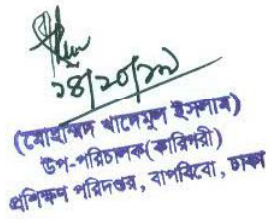 ১৪/১০/১৭
(মোহাম্মদ খাদেমুল ইসলাম)
উপ-পরিচালক(কারিগরী)
প্রশিক্ষণ পরিদপ্তর, বাপবিবো, ঢাকা